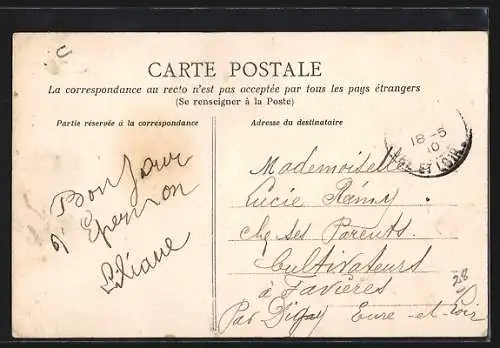 CARTE POSTALE
La correspondance au recto n'est pas acceptée par tous les pays étrangers
(Se renseigner à la Poste)
Partie réservée à la correspondance
Adresse du destinataire
18-5
10
EURE-ET-LOIR
Bonjour
d'Epernon
Liliane
Mademoiselle
Lucie Rémy
chez ses Parents
Cultivateurs
à Favières
Par Digny Eure-et-Loir
28